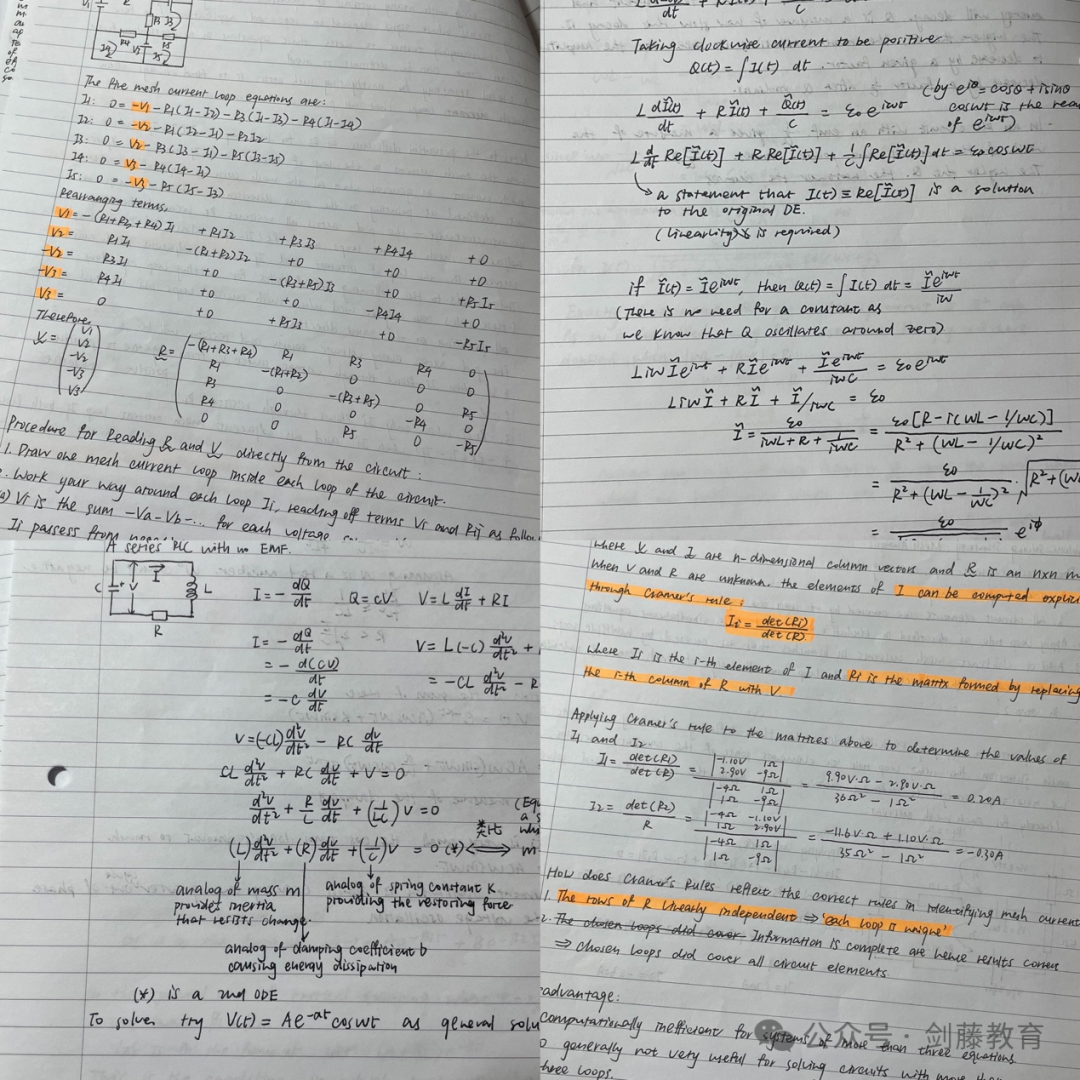 The five mesh current loop equations are:
I1: 0 = -V1 - R1(I1-I2) - R3(I1-I3) - R4(I1-I4)
I2: 0 = -V2 - R1(I2-I1) - R2I2
I3: 0 = V2 - R3(I3-I1) - R5(I3-I5)
I4: 0 = V3 - R4(I4-I1)
I5: 0 = -V3 - R5(I5-I3)
Rearranging terms,
V1 = -(R1+R3+R4)I1 +R1I2 +R3I3 +R4I4 +0
V2 = R1I1 -(R1+R2)I2 +0 +0 +0
-V2 = R3I1 +0 -(R3+R5)I3 +0 +R5I5
-V3 = R4I1 +0 +0 -R4I4 +0
V3 = 0 +0 +R5I3 +0 -R5I5
Therefore
V = (V1 V2 -V2 -V3 V3)
R =
-(R1+R3+R4) R1 R3 R4 0
R1 -(R1+R2) 0 0 0
R3 0 -(R3+R5) 0 R5
R4 0 0 -R4 0
0 0 R5 0 -R5
Procedure for Reading R and V directly from the circuit:
1. Draw one mesh current loop inside each loop of the circuit.
2. Work your way around each loop Ii, reading off terms Vi and Rij as follow
a) Vi is the sum -Va-Vb-... for each voltage
Ii passes from
Taking clockwise current to be positive
Q(t) = ∫I(t) dt.
(by e^iθ = cosθ + isinθ
L dĨ(t)/dt + RĨ(t) + Q̃(t)/C = ε0e^iwt
coswt is the rea
of e^iwt)
L d/dt Re[Ĩ(t)] + R Re[Ĩ(t)] + 1/C ∫Re[Ĩ(t)]dt = ε0coswt
a statement that I(t) ≡ Re[Ĩ(t)] is a solution
to the original DE.
(linearity is required)
if Ĩ(t) = Ĩe^iwt, then Q(t) = ∫I(t) dt = Ĩe^iwt/iw
(There is no need for a constant as
we know that Q oscillates around zero)
LiwĨe^iwt + RĨe^iwt + Ĩe^iwt/iwC = ε0e^iwt
LiwĨ + RĨ + Ĩ/iwC = ε0
Ĩ = ε0/(iwL + R + 1/iwC) = ε0[R - i(wL - 1/wC)]/(R² + (wL - 1/wC)²)
= ε0/(R² + (wL - 1/wC)²) · √R² + (w
= ε0 e^iϕ
A series RLC with no EMF.
C + V I L
R
I = - dQ/dt Q = CV V = L dI/dt + RI
I = - dQ/dt V = L(-C) d²V/dt² +
= - d(CV)/dt = -CL d²V/dt² - R
= -C dV/dt
V = (-CL) d²V/dt² - RC dV/dt
CL d²V/dt² + RC dV/dt + V = 0
d²V/dt² + R/L dV/dt + (1/LC)V = 0
类比
(L) d²V/dt² + (R) dV/dt + (1/C)V = 0 (*) ⟺ m
analog of mass m
provides inertia
that resists change.
analog of spring constant K
providing the restoring force
analog of damping coefficient b
causing energy dissipation
(*) is a 2nd ODE
To solve, try V(t) = Ae^-at coswt as general solu
where V and I are n-dimensional column vectors and R is an nxn m
When V and R are unknown the elements of I can be computed explici
through Cramer's rule:
Ii = det(Ri)/det(R)
where Ii is the i-th element of I and Ri is the matrix formed by replacing
the i-th column of R with V
Applying Cramer's rule to the matrices above to determine the values of
I1 and I2.
I1 = det(R1)/det(R) = |-1.10V 1Ω 2.90V -9Ω|/|-4Ω 1Ω 1Ω -9Ω| = (9.90V·Ω - 2.90V·Ω)/(36Ω² - 1Ω²) = 0.20A
I2 = det(R2)/R = |-4Ω -1.10V 1Ω 2.90V|/|-4Ω 1Ω 1Ω -9Ω| = (-11.6V·Ω + 1.10V·Ω)/(35Ω² - 1Ω²) = -0.30A
How does Cramer's Rules reflect the correct rules in identifying mesh current
1. The rows of R linearly independent ⇒ 'each loop is unique'
2. The chosen loops did cover Information is complete are hence results correc
⇒ chosen loops did cover all circuit elements
advantage:
Computationally inefficient for systems of more than three equations
generally not very useful for solving circuits with more than
three loops.
公众号·剑藤教育